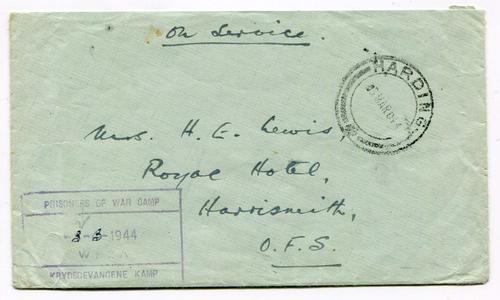 On Service.
HARDING
Mrs. H. E. Lewis
Royal Hotel,
Harrismith,
O.F.S.
PRISONERS OF WAR CAMP
-3-1944
KRYGSGEVANGENE KAMP